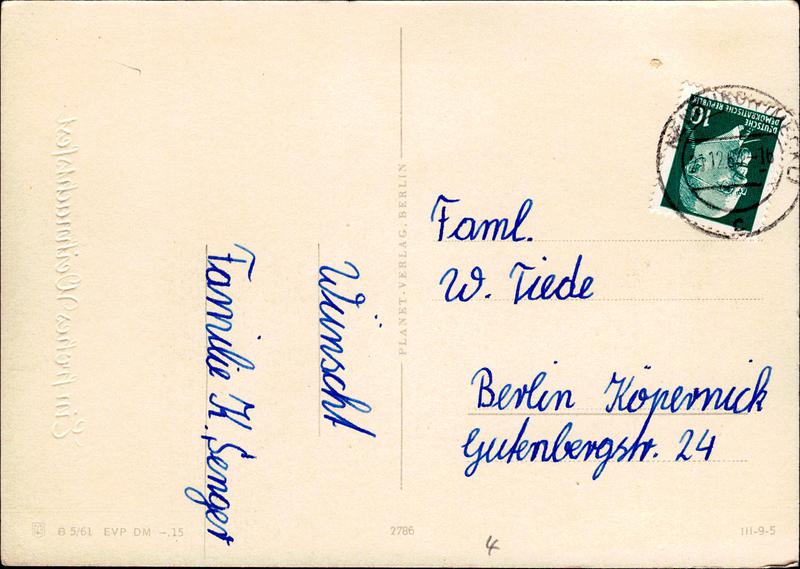 Faml.
W. Tiede
Berlin Köpernick
Gutenbergstr. 24
Wünscht
Familie K. Senget
PLANET-VERLAG, BERLIN
Ein frohes Weihnachtsfest
B 5/61 EVP DM -.15
2786
4
III-9-5
10
DEUTSCHE
DEMOKRATISCHE REPUBLIK